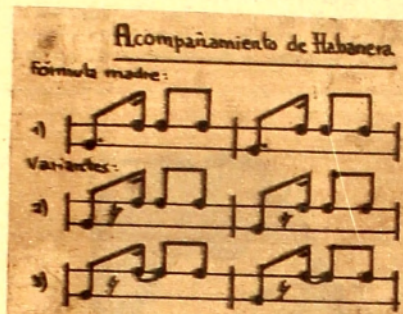 Acompañamiento de Habanera
Fórmula madre:
1)
Variantes:
2)
3)